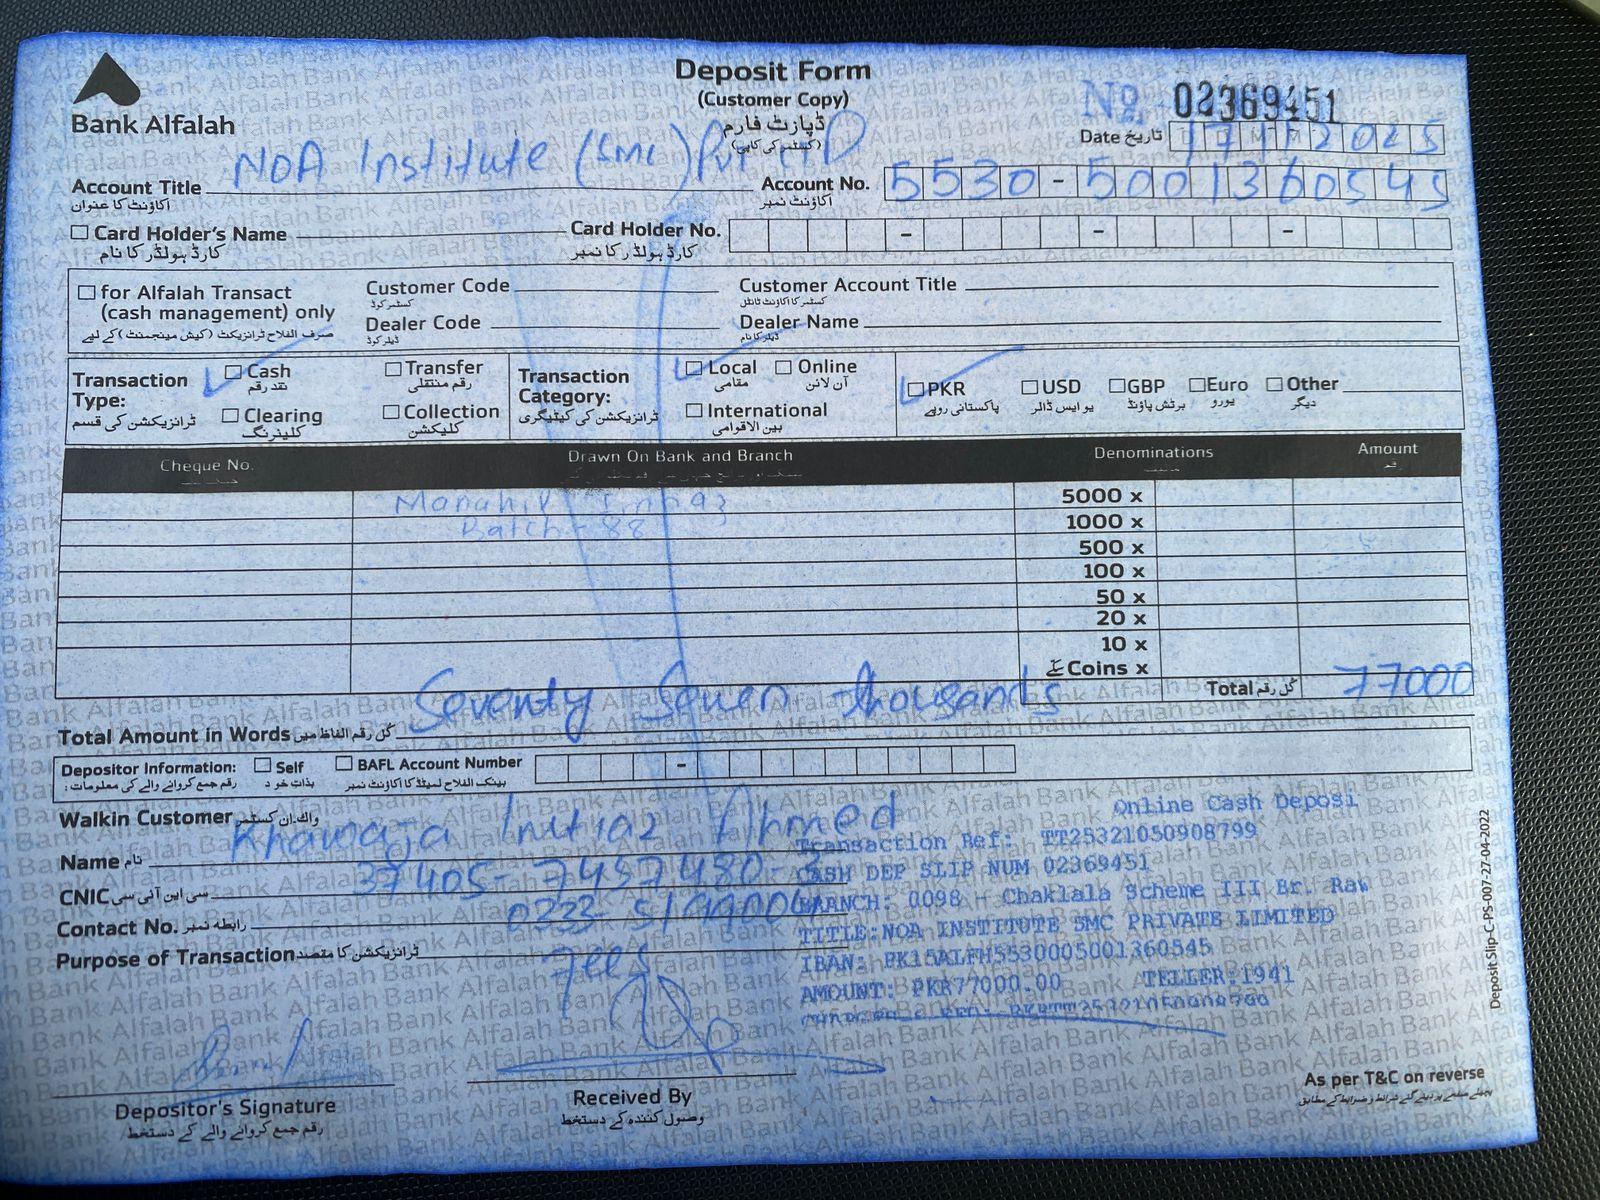 Bank Alfalah
Deposit Form
(Customer Copy)
ڈپازٹ فارم
(کسٹمر کی کاپی)
No. 02369451
Date تاریخ 17 11 2025
Account Title NOA Institute (SMC) Pvt
اکاؤنٹ کا عنوان
Account No. 5530-5001360545
اکاؤنٹ نمبر
Card Holder's Name
کارڈ ہولڈر کا نام
Card Holder No.
کارڈ ہولڈر کا نمبر
for Alfalah Transact
(cash management) only
صرف الفلاح ٹرانزیکٹ (کیش مینجمنٹ) کے لیے
Customer Code
کسٹمر کوڈ
Customer Account Title
کسٹمر کا اکاؤنٹ ٹائٹل
Dealer Code
ڈیلر کوڈ
Dealer Name
ڈیلر کا نام
Transaction Type:
ٹرانزیکشن کی قسم
Cash
نقد رقم
Transfer
رقم منتقلی
Clearing
کلیئرنگ
Collection
کلیکشن
Transaction Category:
ٹرانزیکشن کی کیٹیگری
Local
مقامی
Online
آن لائن
International
بین الاقوامی
PKR
پاکستانی روپے
USD
یو ایس ڈالر
GBP
برٹش پاؤنڈ
Euro
یورو
Other
دیگر
Cheque No. Drawn On Bank and Branch Denominations Amount
Manahil Imtiaz
Batch-88
5000 x
1000 x
500 x
100 x
50 x
20 x
10 x
Coins x
Total کل رقم 77000
Total Amount in Words کل رقم الفاظ میں Seventy Seven thousands
Depositor Information:
رقم جمع کروانے والے کی معلومات:
Self
بذات خود
BAFL Account Number
بینک الفلاح لمیٹڈ کا اکاؤنٹ نمبر
Walkin Customer واک ان کسٹمر
Name نام Khawaja Imtiaz Ahmed
CNIC سی این آئی سی 37405-7457480-3
Contact No. رابطہ نمبر 0333
Purpose of Transaction ٹرانزیکشن کا مقصد Fees
Online Cash Deposi
Transaction Ref: TT25321050908799
CASH DEP SLIP NUM 02369451
BRANCH: 0098 - Chaklala Scheme III Br. Raw
TITLE:NOA INSTITUTE SMC PRIVATE LIMITED
IBAN: PK15ALFH5530005001360545
AMOUNT: PKR77000.00 TELLER:1941
Depositor's Signature
رقم جمع کروانے والے کے دستخط
Received By
وصول کنندہ کے دستخط
As per T&C on reverse
Deposit Slip-C-PS-007-27-04-2022